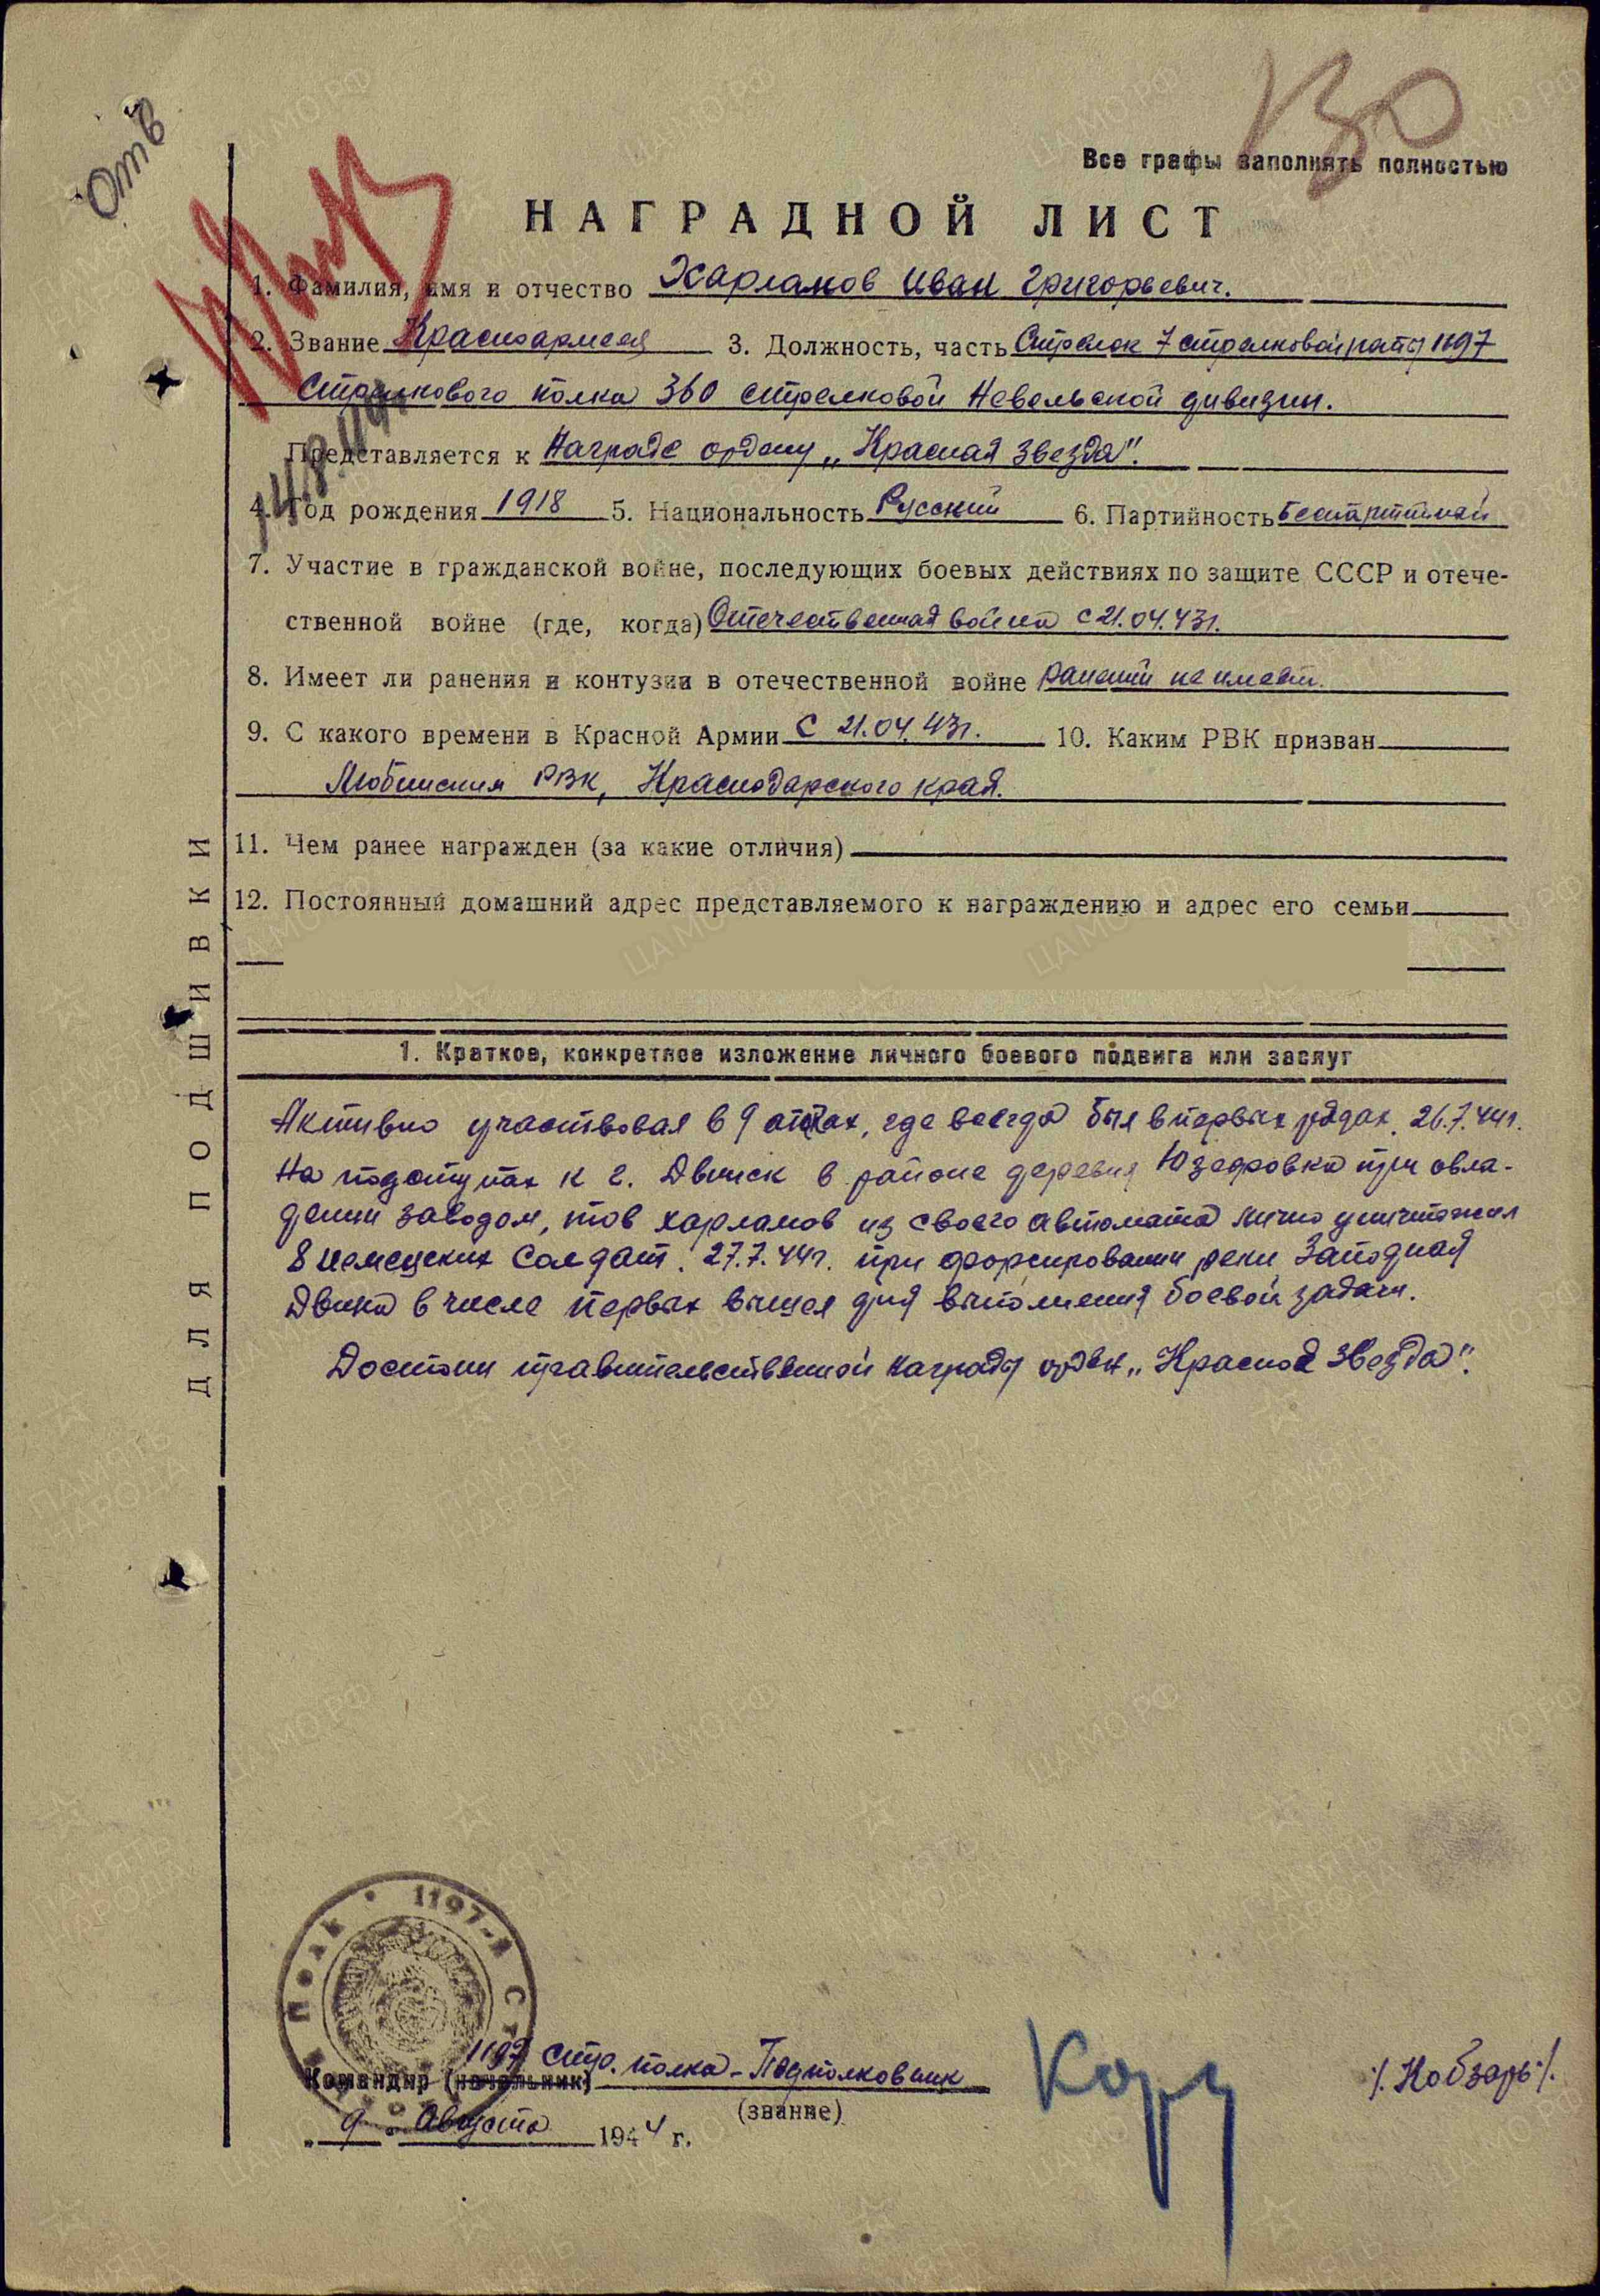 130
Отв
Все графы заполнять полностью
НАГРАДНОЙ ЛИСТ
1. Фамилия, имя и отчество Харламов Иван Григорьевич.
2. Звание Красноармеец 3. Должность, часть Стрелок 7 стрелковой роты 1197
стрелкового полка 360 стрелковой Невельской дивизии.
Представляется к Награде ордену „Красная звезда".
4. Год рождения 1918 5. Национальность Русский 6. Партийность
7. Участие в гражданской войне, последующих боевых действиях по защите СССР и отече-
ственной войне (где, когда) Отечественная война с 21.04.43г.
8. Имеет ли ранения и контузии в отечественной войне ранений не имеет.
9. С какого времени в Красной Армии с 21.04.43г. 10. Каким РВК призван
РВК, Краснодарского края.
11. Чем ранее награжден (за какие отличия)
12. Постоянный домашний адрес представляемого к награждению и адрес его семьи
ДЛЯ ПОДШИВКИ
1. Краткое, конкретное изложение личного боевого подвига или заслуг
Активно участвовал в 9 где всегда был в первых рядах. 26.7.44г.
На подступах к г. Двинск в районе деревня Юзефовка при овла-
дении заводом, тов Харламов из своего автомата лично уничтожил
8 немецких солдат. 27.7.44г. при форсировании реки Западная
Двина в числе первых вышел для выполнения боевой задачи.
Достоин правительственной награды орден „Красной Звезда".
ПОЛК • 1197-Й СТ
1197 стр. полка - Подполковник
Командир (начальник)
(звание)
/.Кобзарь/.
„9" Августа 1944 г.